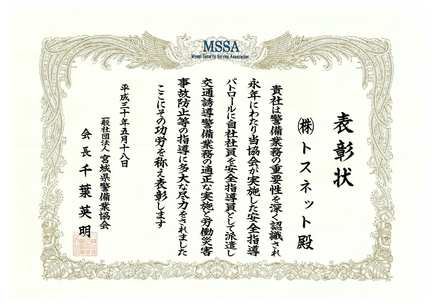 MSSA
Miyagi Security Service Association
表彰状
㈱トスネット殿
貴社は警備業務の重要性を深く認識され
永年にわたり当協会が実施した安全指導
パトロールに自社社員を安全指導員として派遣し
交通誘導警備業務の適正な実施と労働災害
事故防止等の指導に多大な尽力をされました
ここにその功労を称え表彰します
平成三十年五月十八日
一般社団法人宮城県警備業協会
会長千葉英明